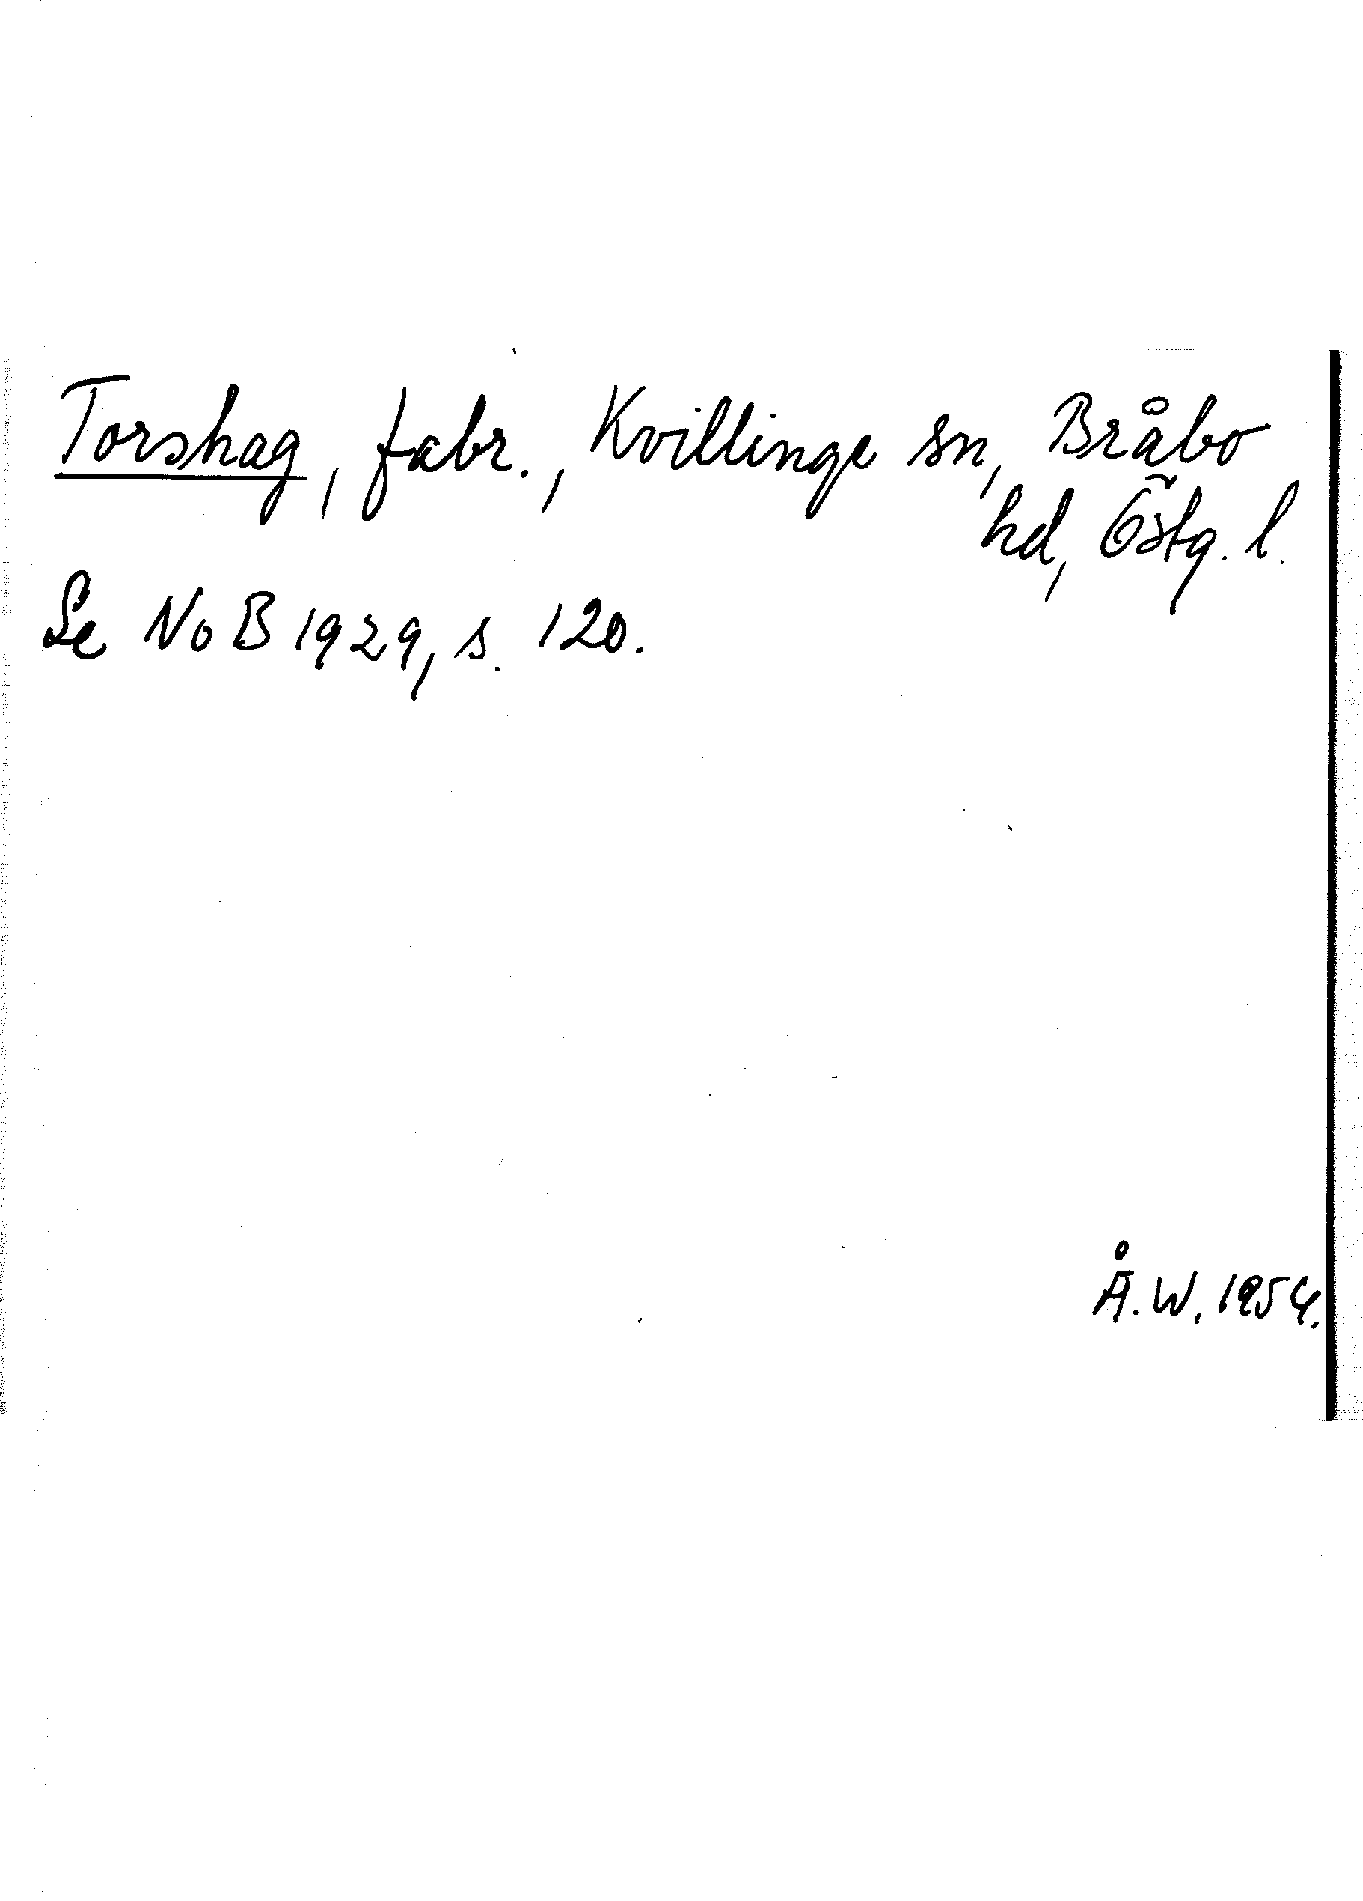 Torshag, fabr., Kvillinge sn, Bråbo
hd, Östg. l.
Se NoB 1929, s. 120.
Å.W. 1954.